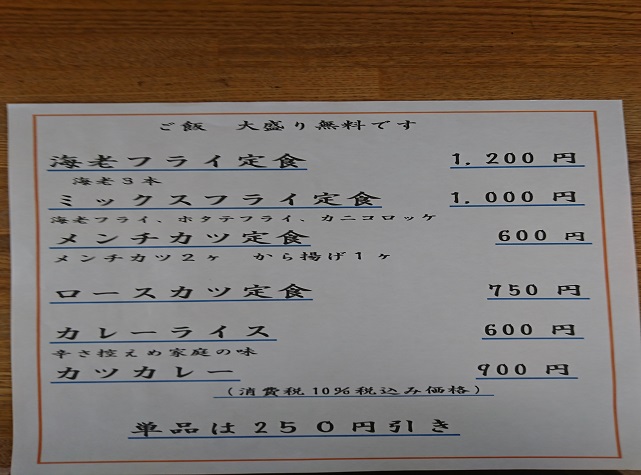 ご飯 大盛り無料です
海老フライ定食 1,200 円
海老3本
ミックスフライ定食 1,000 円
海老フライ、ホタテフライ、カニコロッケ
メンチカツ定食 600 円
メンチカツ2ヶ から揚げ1ヶ
ロースカツ定食 750 円
カレーライス 600 円
辛さ控えめ家庭の味
カツカレー 900 円
(消費税10%税込み価格)
単品は250円引き